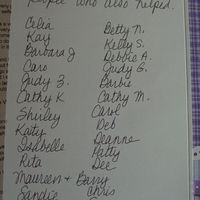 People who also helped.
Celia Betty N.
Kay Kelly S.
Barbara J Debbie A.
Caro Judy G.
Judy Z. Barbie
Cathy K Cathy M.
Shirley Carol
Katy Deb
Isabelle Deanne
Rita Patty
Dee
Maureen + Barry
Sandie Chris